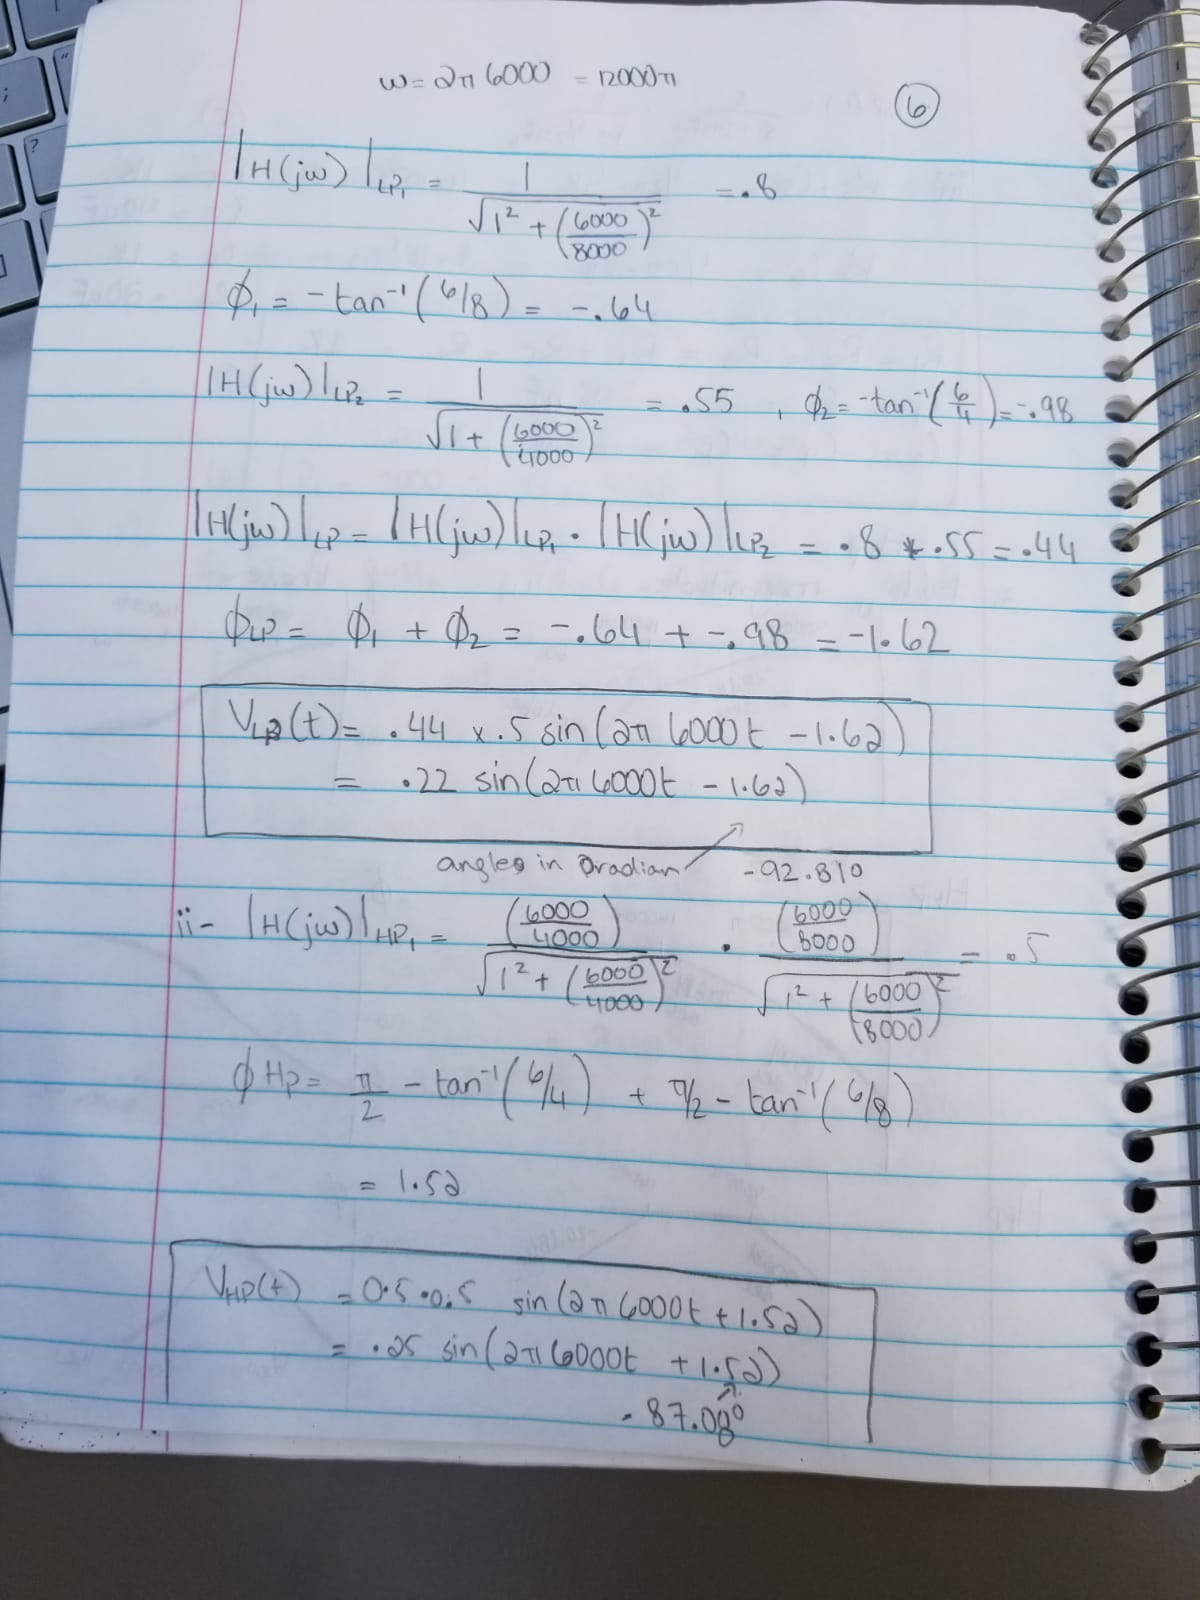 w = 2π 6000 = 12000π
6
|H(jw)|LP₁ = 1 / √(1² + (6000/8000)²) = .8
ϕ₁ = -tan⁻¹(6/8) = -.64
|H(jw)|LP₂ = 1 / √(1 + (6000/4000)²) = .55 , ϕ₂ = -tan⁻¹(6/4) = -.98
|H(jw)|LP = |H(jw)|LP₁ · |H(jw)|LP₂ = .8 * .55 = .44
ϕLP = ϕ₁ + ϕ₂ = -.64 + -.98 = -1.62
VLP(t) = .44 x .5 sin(2π 6000t - 1.62)
= .22 sin(2π 6000t - 1.62)
angles in radian -92.81°
ii- |H(jw)|HP₁ = (6000/4000) / √(1² + (6000/4000)²) · (6000/8000) / √(1² + (6000/8000)²) = .5
ϕHP = π/2 - tan⁻¹(6/4) + π/2 - tan⁻¹(6/8)
= 1.52
VHP(t) = 0.5·0.5 sin(2π 6000t + 1.52)
= .25 sin(2π 6000t + 1.52)
- 87.08°